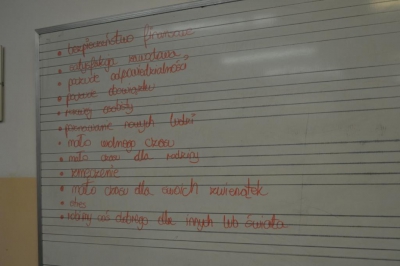 • bezpieczeństwo finansowe
• satysfakcja zawodowa
• poczucie odpowiedzialności
• poczucie obowiązku
• rozwój osobisty
• poznawanie nowych ludzi
• mało wolnego czasu
• mało czasu dla rodziny
• zmęczenie
• mało czasu dla swoich zwierzątek
• stres
• robimy coś dobrego dla innych lub świata